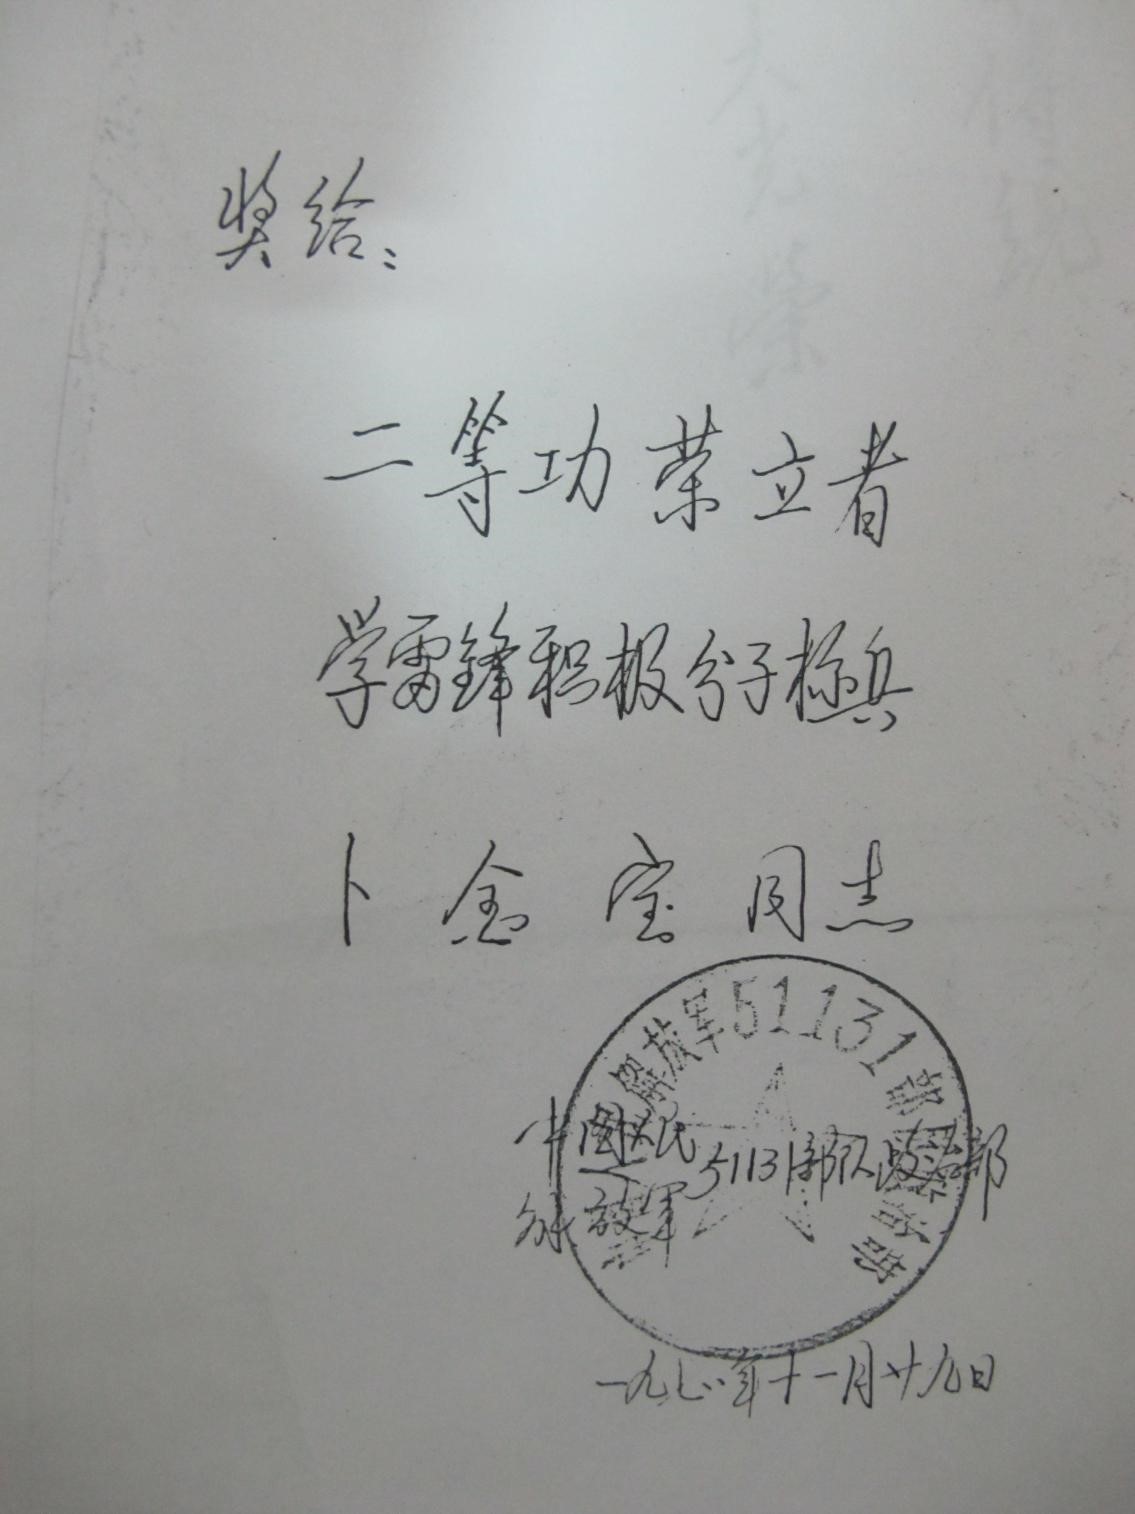 奖给：
二等功荣立者
学雷锋积极分子标兵
卜金宝同志
解放军51131部
中国人民
解放军
51131部队政治部
年十一月廿九日